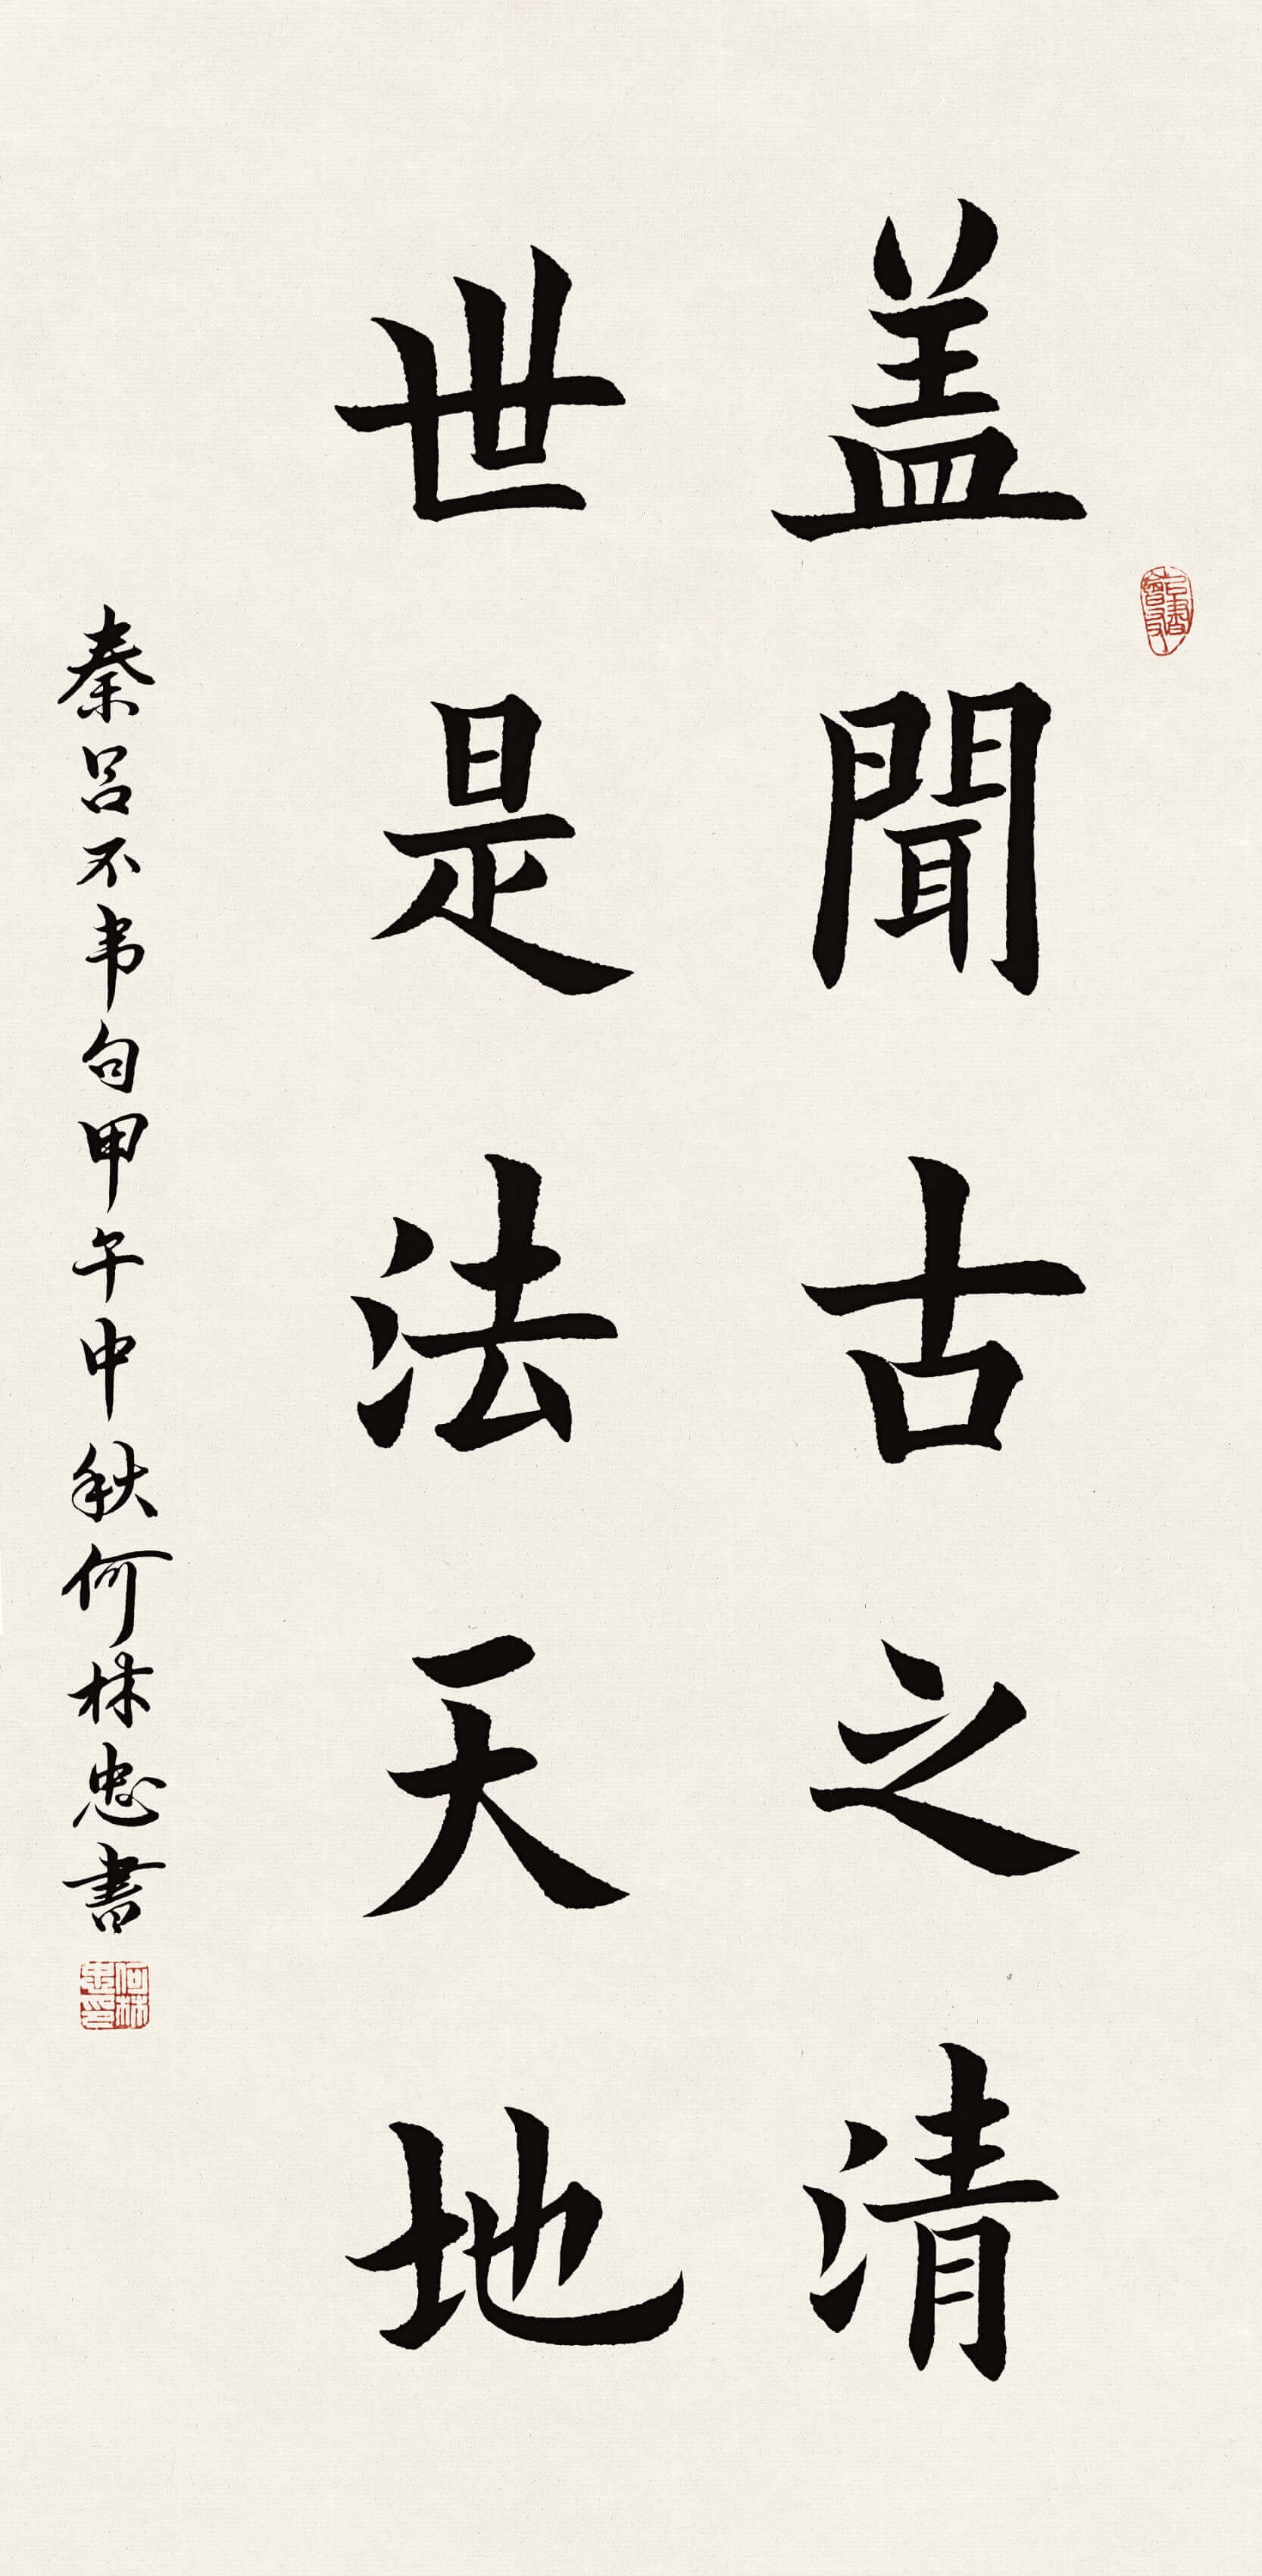 盖聞古之清
世是法天地
秦吕不韦句甲午中秋何林忠書
何林忠印